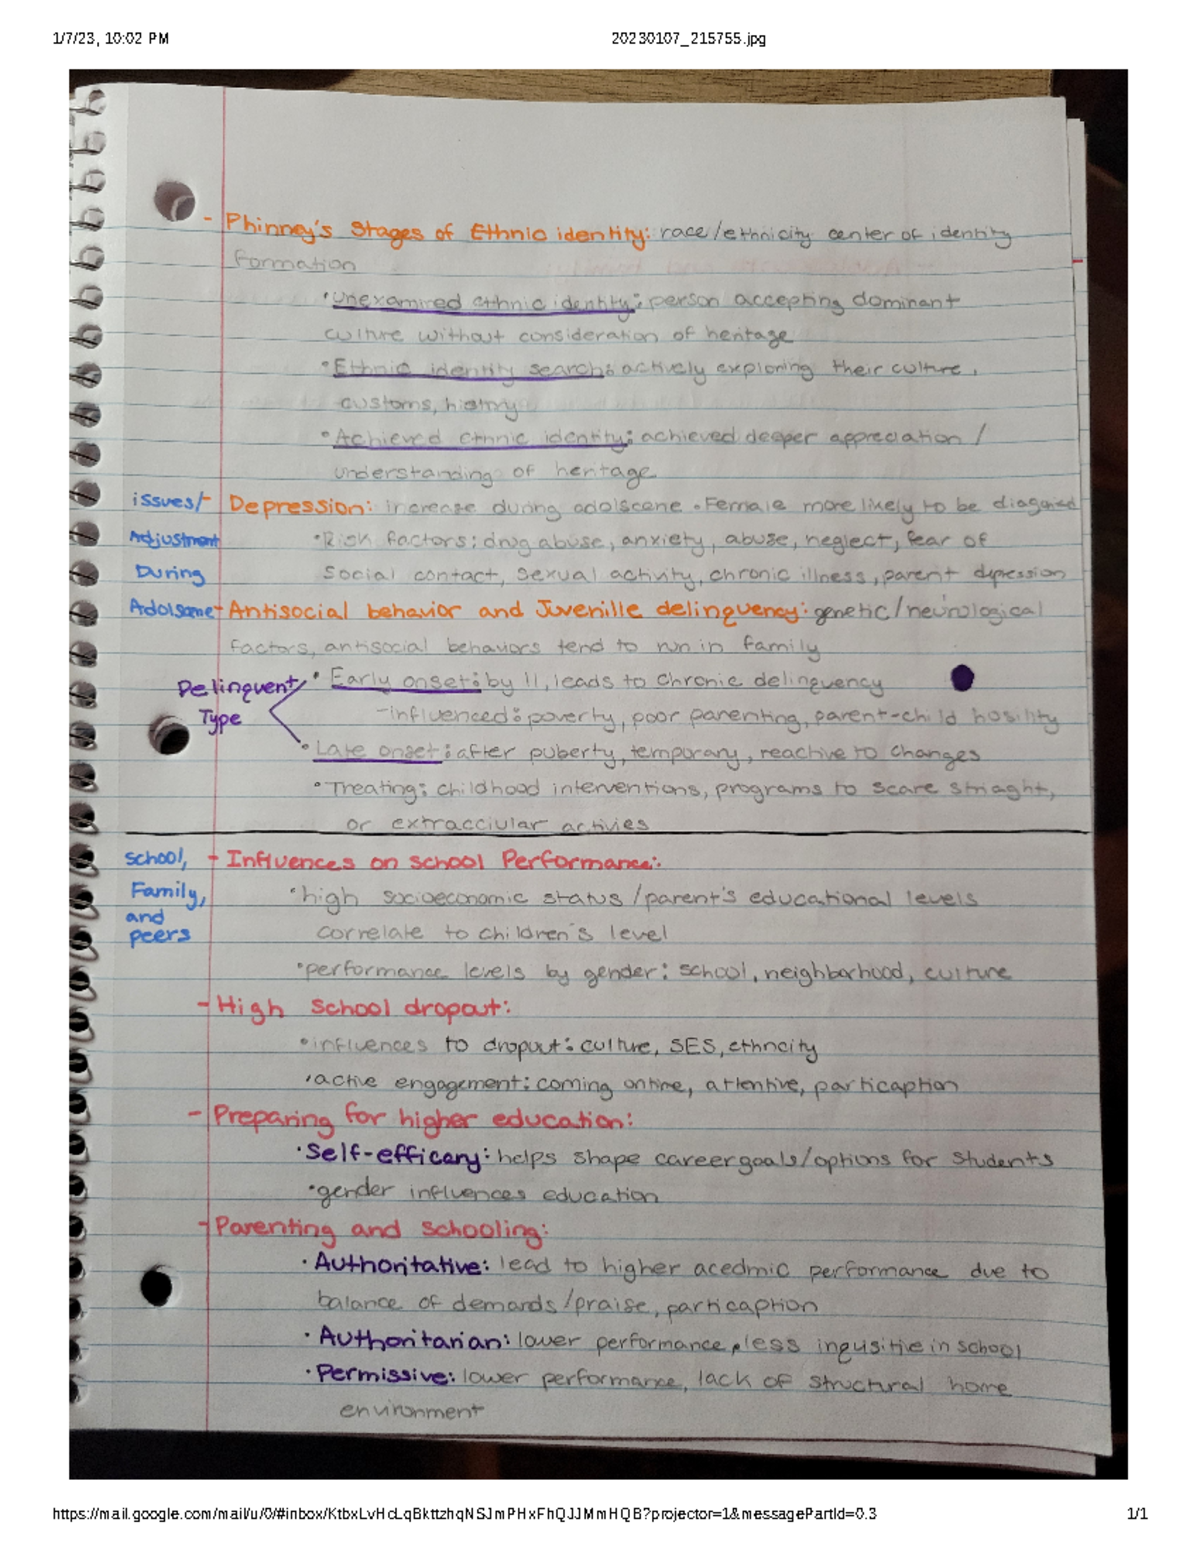 1/7/23, 10:02 PM
20230107_215755.jpg
- Phinney's Stages of Ethnic identity: race/ethnicity center of identity
formation
• Unexamined ethnic identity: person accepting dominant
culture without consideration of heritage
• Ethnic identity search: actively exploring their culture,
customs, history
• Achieved ethnic identity: achieved deeper appreciation /
understanding of heritage
issues/ - Depression: increase during adolscene • Female more likely to be diagonsed
Adjustment • Risk factors: drug abuse, anxiety, abuse, neglect, fear of
During social contact, sexual activity, chronic illness, parent depression
Adolsame - Antisocial behavior and Juvenille delinquency: genetic/neurological
factors, antisocial behaviors tend to run in family
Delinquent • Early onset: by 11, leads to chronic delinquency
Type -influenced: poverty, poor parenting, parent-child hosility
• Late onset: after puberty, temporary, reactive to changes
• Treating: childhood interventions, programs to scare striaght,
or extracciular activies
school, - Influences on school Performance:
Family, • high socioeconomic status / parent's educational levels
and
peers correlate to children's level
• performance levels by gender: school, neighborhood, culture
- High School dropout:
• influences to dropout: culture, SES, ethncity
• active engagement: coming ontime, attentive, particaption
- Preparing for higher education:
• Self-efficacy: helps shape career goals/options for students
• gender influences education
- Parenting and schooling:
• Authoritative: lead to higher acedmic performance due to
balance of demands/praise, particaption
• Authoritarian: lower performance, less inqusitie in school
• Permissive: lower performance, lack of structural home
environment
https://mail.google.com/mail/u/0/#inbox/KtbxLvHcLqBkttzhqNSJmPHxFhQJJMmHQB?projector=1&messagePartId=0.3
1/1